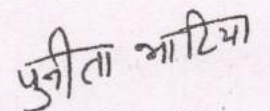 पुनीता भाटिया